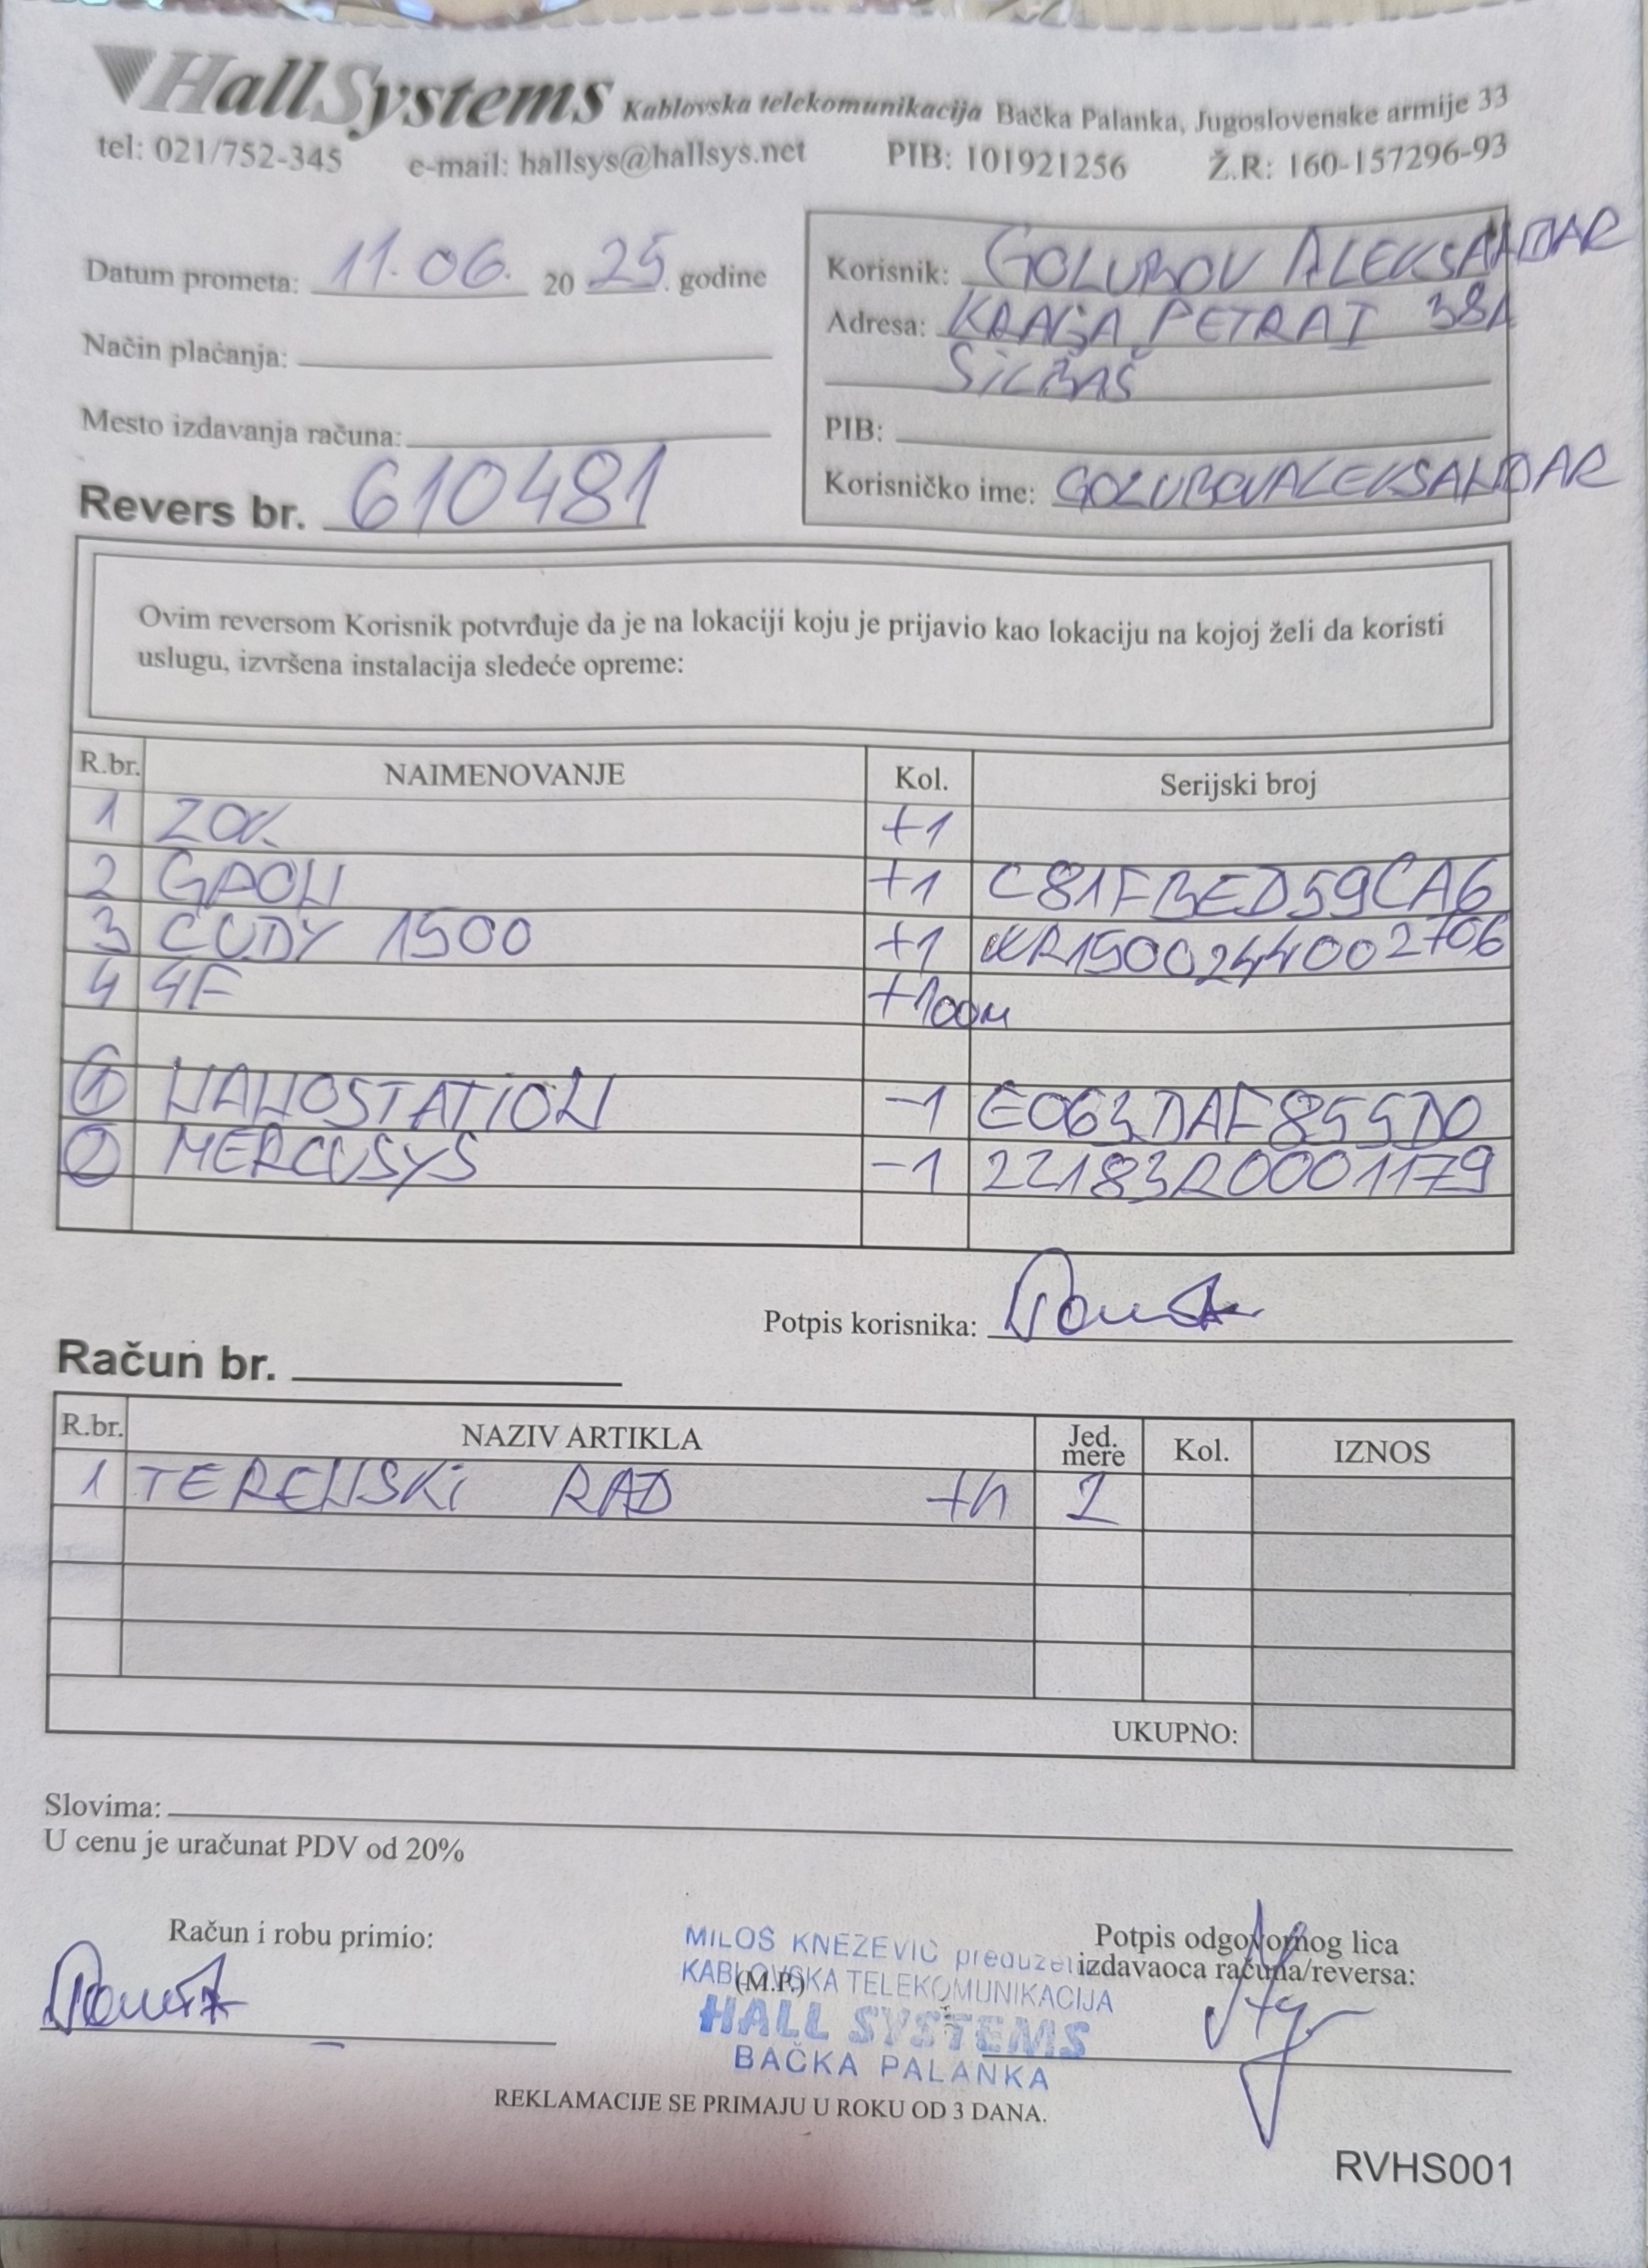 HallSystems Kablovska telekomunikacija Bačka Palanka, Jugoslovenske armije 33
tel: 021/752-345 e-mail: hallsys@hallsys.net PIB: 101921256 Ž.R: 160-157296-93
Datum prometa: 11.06. 20 25. godine
Način plaćanja:
Mesto izdavanja računa:
Revers br. 610481
Korisnik: GOLUBOV ALEKSANDAR
Adresa: KRALJA PETRA I 38A
SILBAŠ
PIB:
Korisničko ime: GOLUBOVALEKSANDAR
Ovim reversom Korisnik potvrđuje da je na lokaciji koju je prijavio kao lokaciju na kojoj želi da koristi
uslugu, izvršena instalacija sledeće opreme:
R.br. NAIMENOVANJE Kol. Serijski broj
1 ZOK +1
2 GPON +1 C81FBED59CA6
3 CUDY 1500 +1 WR1500244002706
4 4F +100m
1 NANOSTATION -1 E063DAF855D0
2 MERCUSYS -1 22183R0001179
Potpis korisnika:
Račun br.
R.br. NAZIV ARTIKLA Jed. mere Kol. IZNOS
1 TERENSKI RAD +h 2
UKUPNO:
Slovima:
U cenu je uračunat PDV od 20%
Račun i robu primio:
(M.P.)
MILOŠ KNEŽEVIĆ preduzetnik
KABLOVSKA TELEKOMUNIKACIJA
HALL SYSTEMS
BAČKA PALANKA
Potpis odgovornog lica
izdavaoca računa/reversa:
REKLAMACIJE SE PRIMAJU U ROKU OD 3 DANA.
RVHS001